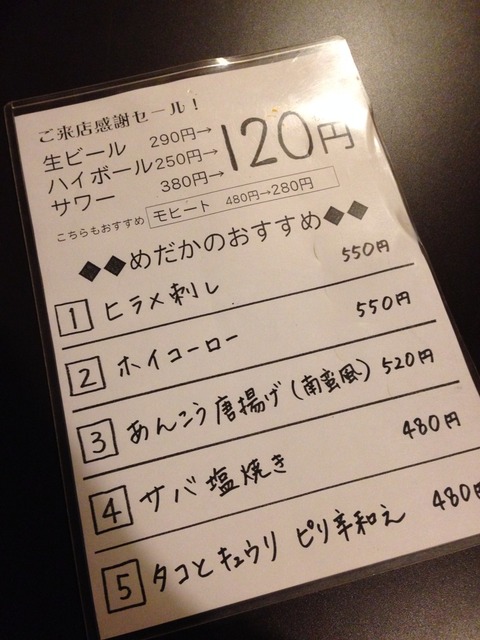 ご来店感謝セール！
生ビール 290円→
ハイボール 250円→ 120円
サワー 380円→
こちらもおすすめ モヒート 480円→280円
◆◆めだかのおすすめ◆◆
1 ヒラメ刺し 550円
2 ホイコーロー 550円
3 あんこう唐揚げ(南蛮風) 520円
4 サバ塩焼き 480円
5 タコとキュウリ ピリ辛和え 480円